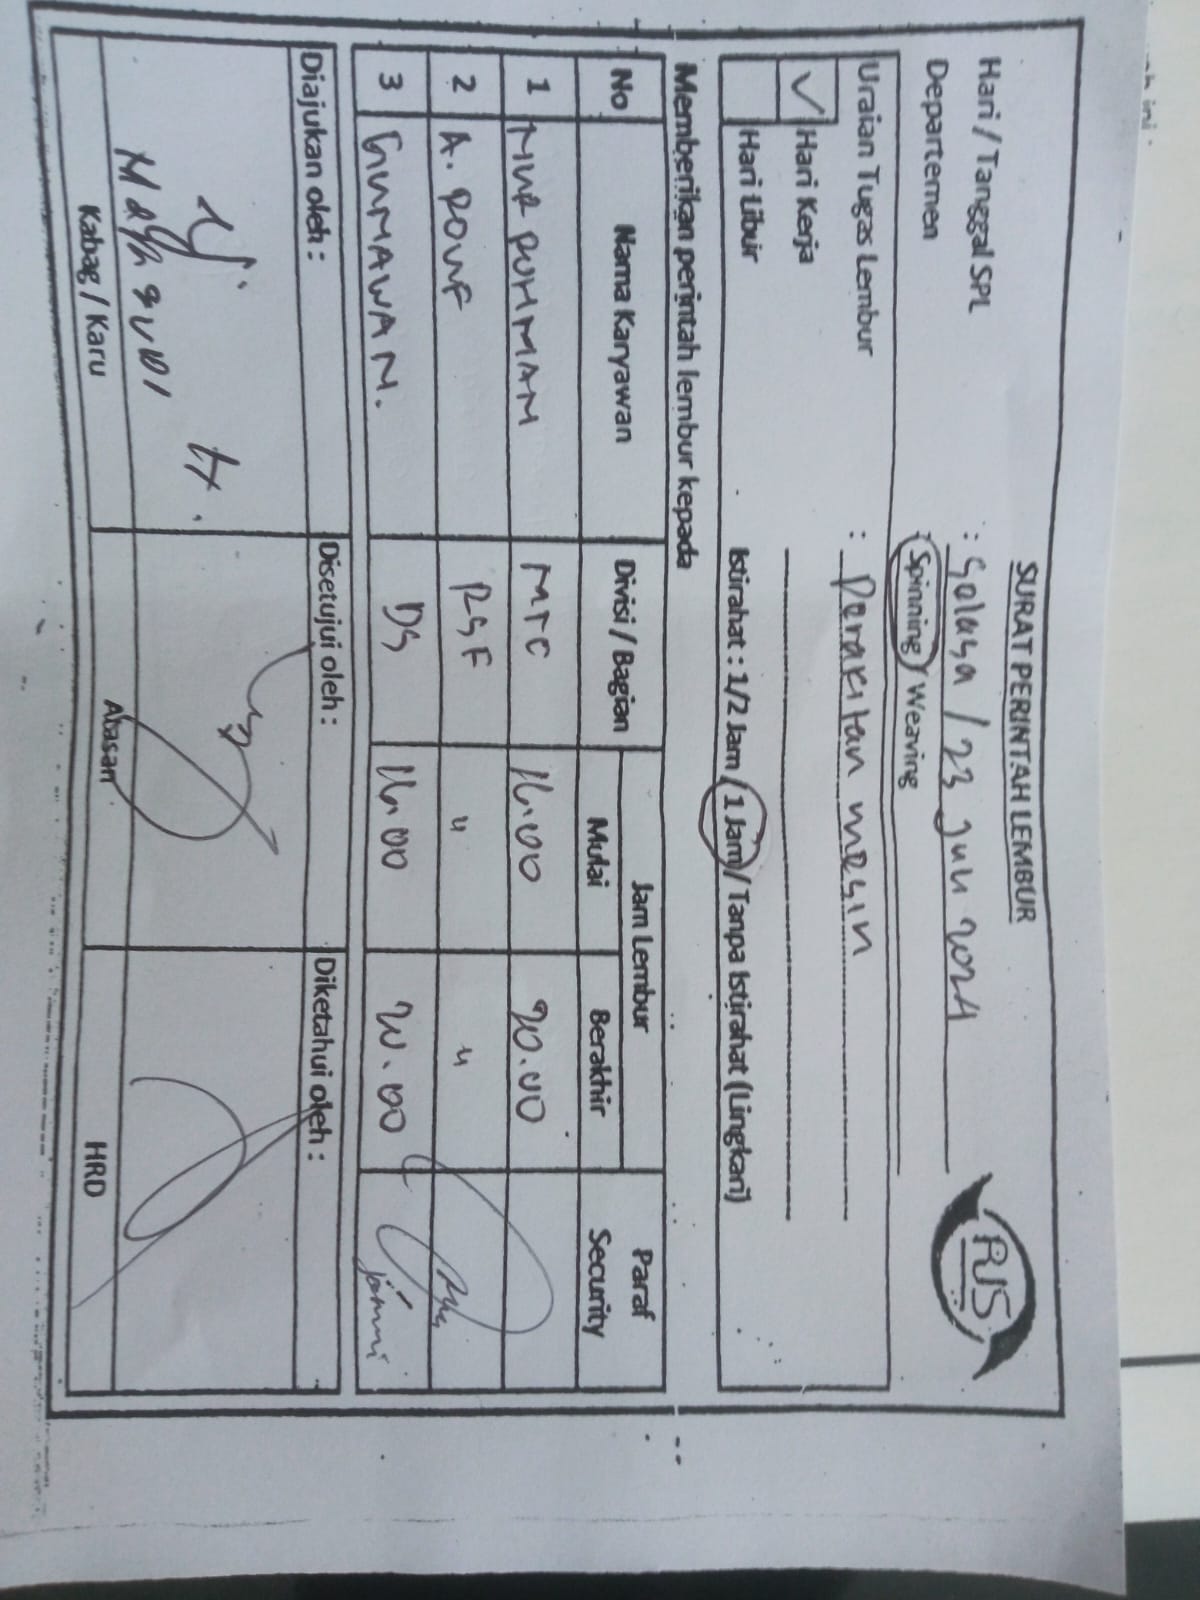 SURAT PERINTAH LEMBUR
RJS
Hari / Tanggal SPL : Selasa / 23 Juli 2024
Departemen : Spinning / Weaving
Uraian Tugas Lembur : Perakitan mesin
✓ Hari Kerja
Hari Libur
Istirahat : 1/2 Jam / 1 Jam / Tanpa Istirahat (Lingkari)
Memberikan perintah lembur kepada
No Nama Karyawan Divisi / Bagian Jam Lembur Paraf Security
Mulai Berakhir
1 NUR ROHMAN MTC 16.00 20.00
2 A. ROUF RSF " "
3 GUNAWAN. DS 16.00 20.00
Diajukan oleh : Disetujui oleh : Diketahui oleh :
H.
Kabag / Karu Atasan HRD